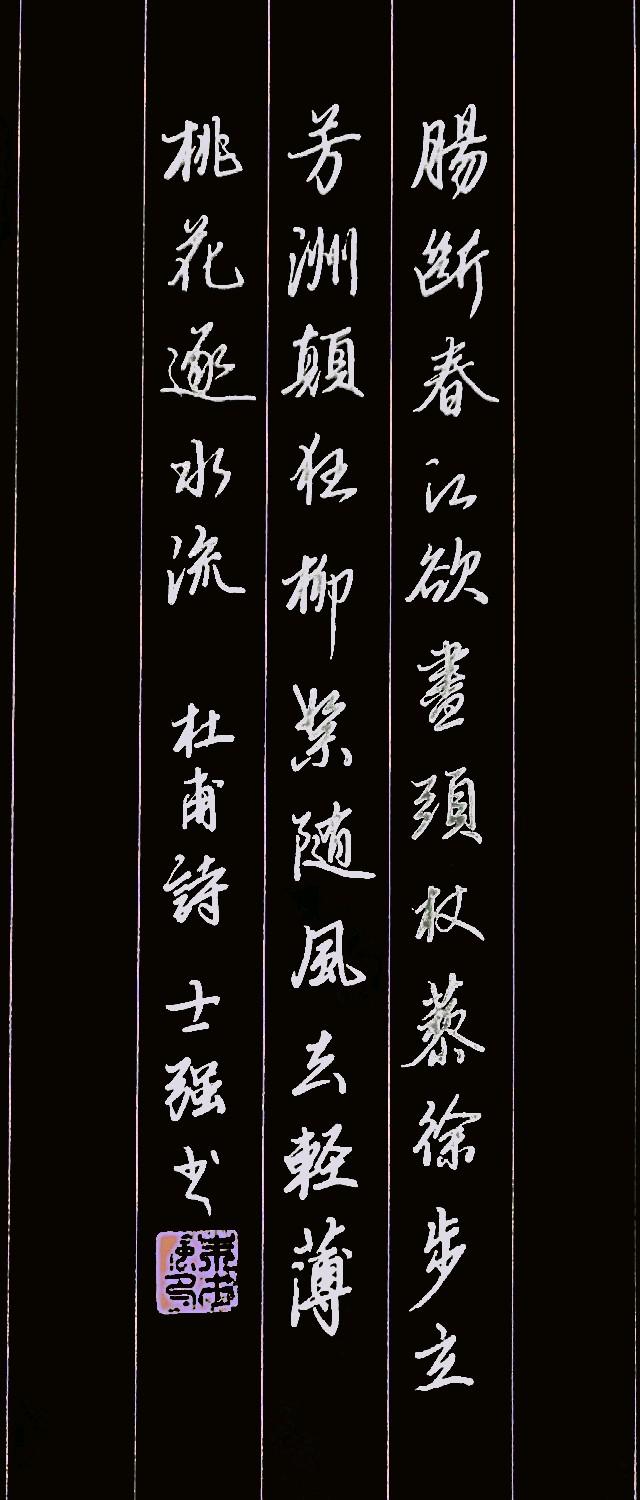 腸斷春江欲盡頭杖藜徐步立
芳洲顛狂柳絮随風去軽薄
桃花逐水流 杜甫詩 士强书